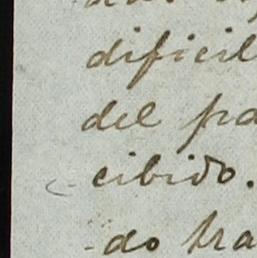 dificil
del pa
cibido.
-do tra